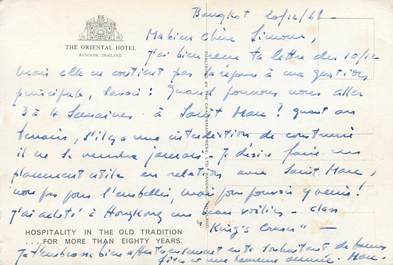 Bangkok 20/12/68
THE ORIENTAL HOTEL
BANGKOK, THAILAND
Ma bien Chère Simone,
J'ai bien reçu ta lettre du 10/12
mais elle ne contient pas la réponse à ma question
principale, savoir: Quand pouvons nous aller
3 à 4 semaines à Saint Marc? Quant au
terrain, s'il y a une interdiction de construire
il ne se vendra jamais. Je désire faire un
placement utile en relation avec Saint Marc,
non pas pour l'embellir, mais pour pouvoir y venir!
J'ai acheté à Hongkong un beau voilier - class
"King's Cruiser" -
HOSPITALITY IN THE OLD TRADITION
...FOR MORE THAN EIGHTY YEARS.
Je t'embrasse bien affectueusement en te souhaitant de bonnes
fêtes et une bonne année. Marc.